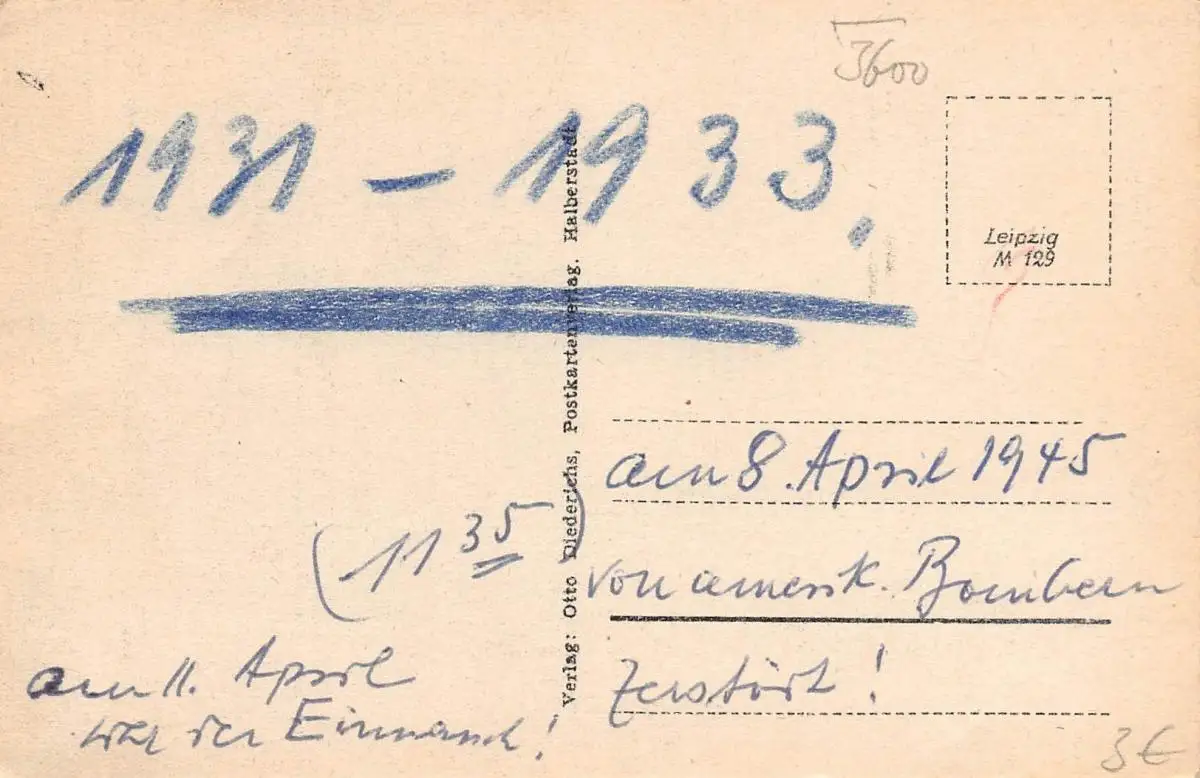 3600
1931 – 1933.
Leipzig
M 129
Verlag: Otto Diederichs, Postkartenverlag. Halberstadt
am 8. April 1945
(11 35)
von amerik. Bombern
zerstört!
am 11. April
war der Einmarsch!
3€